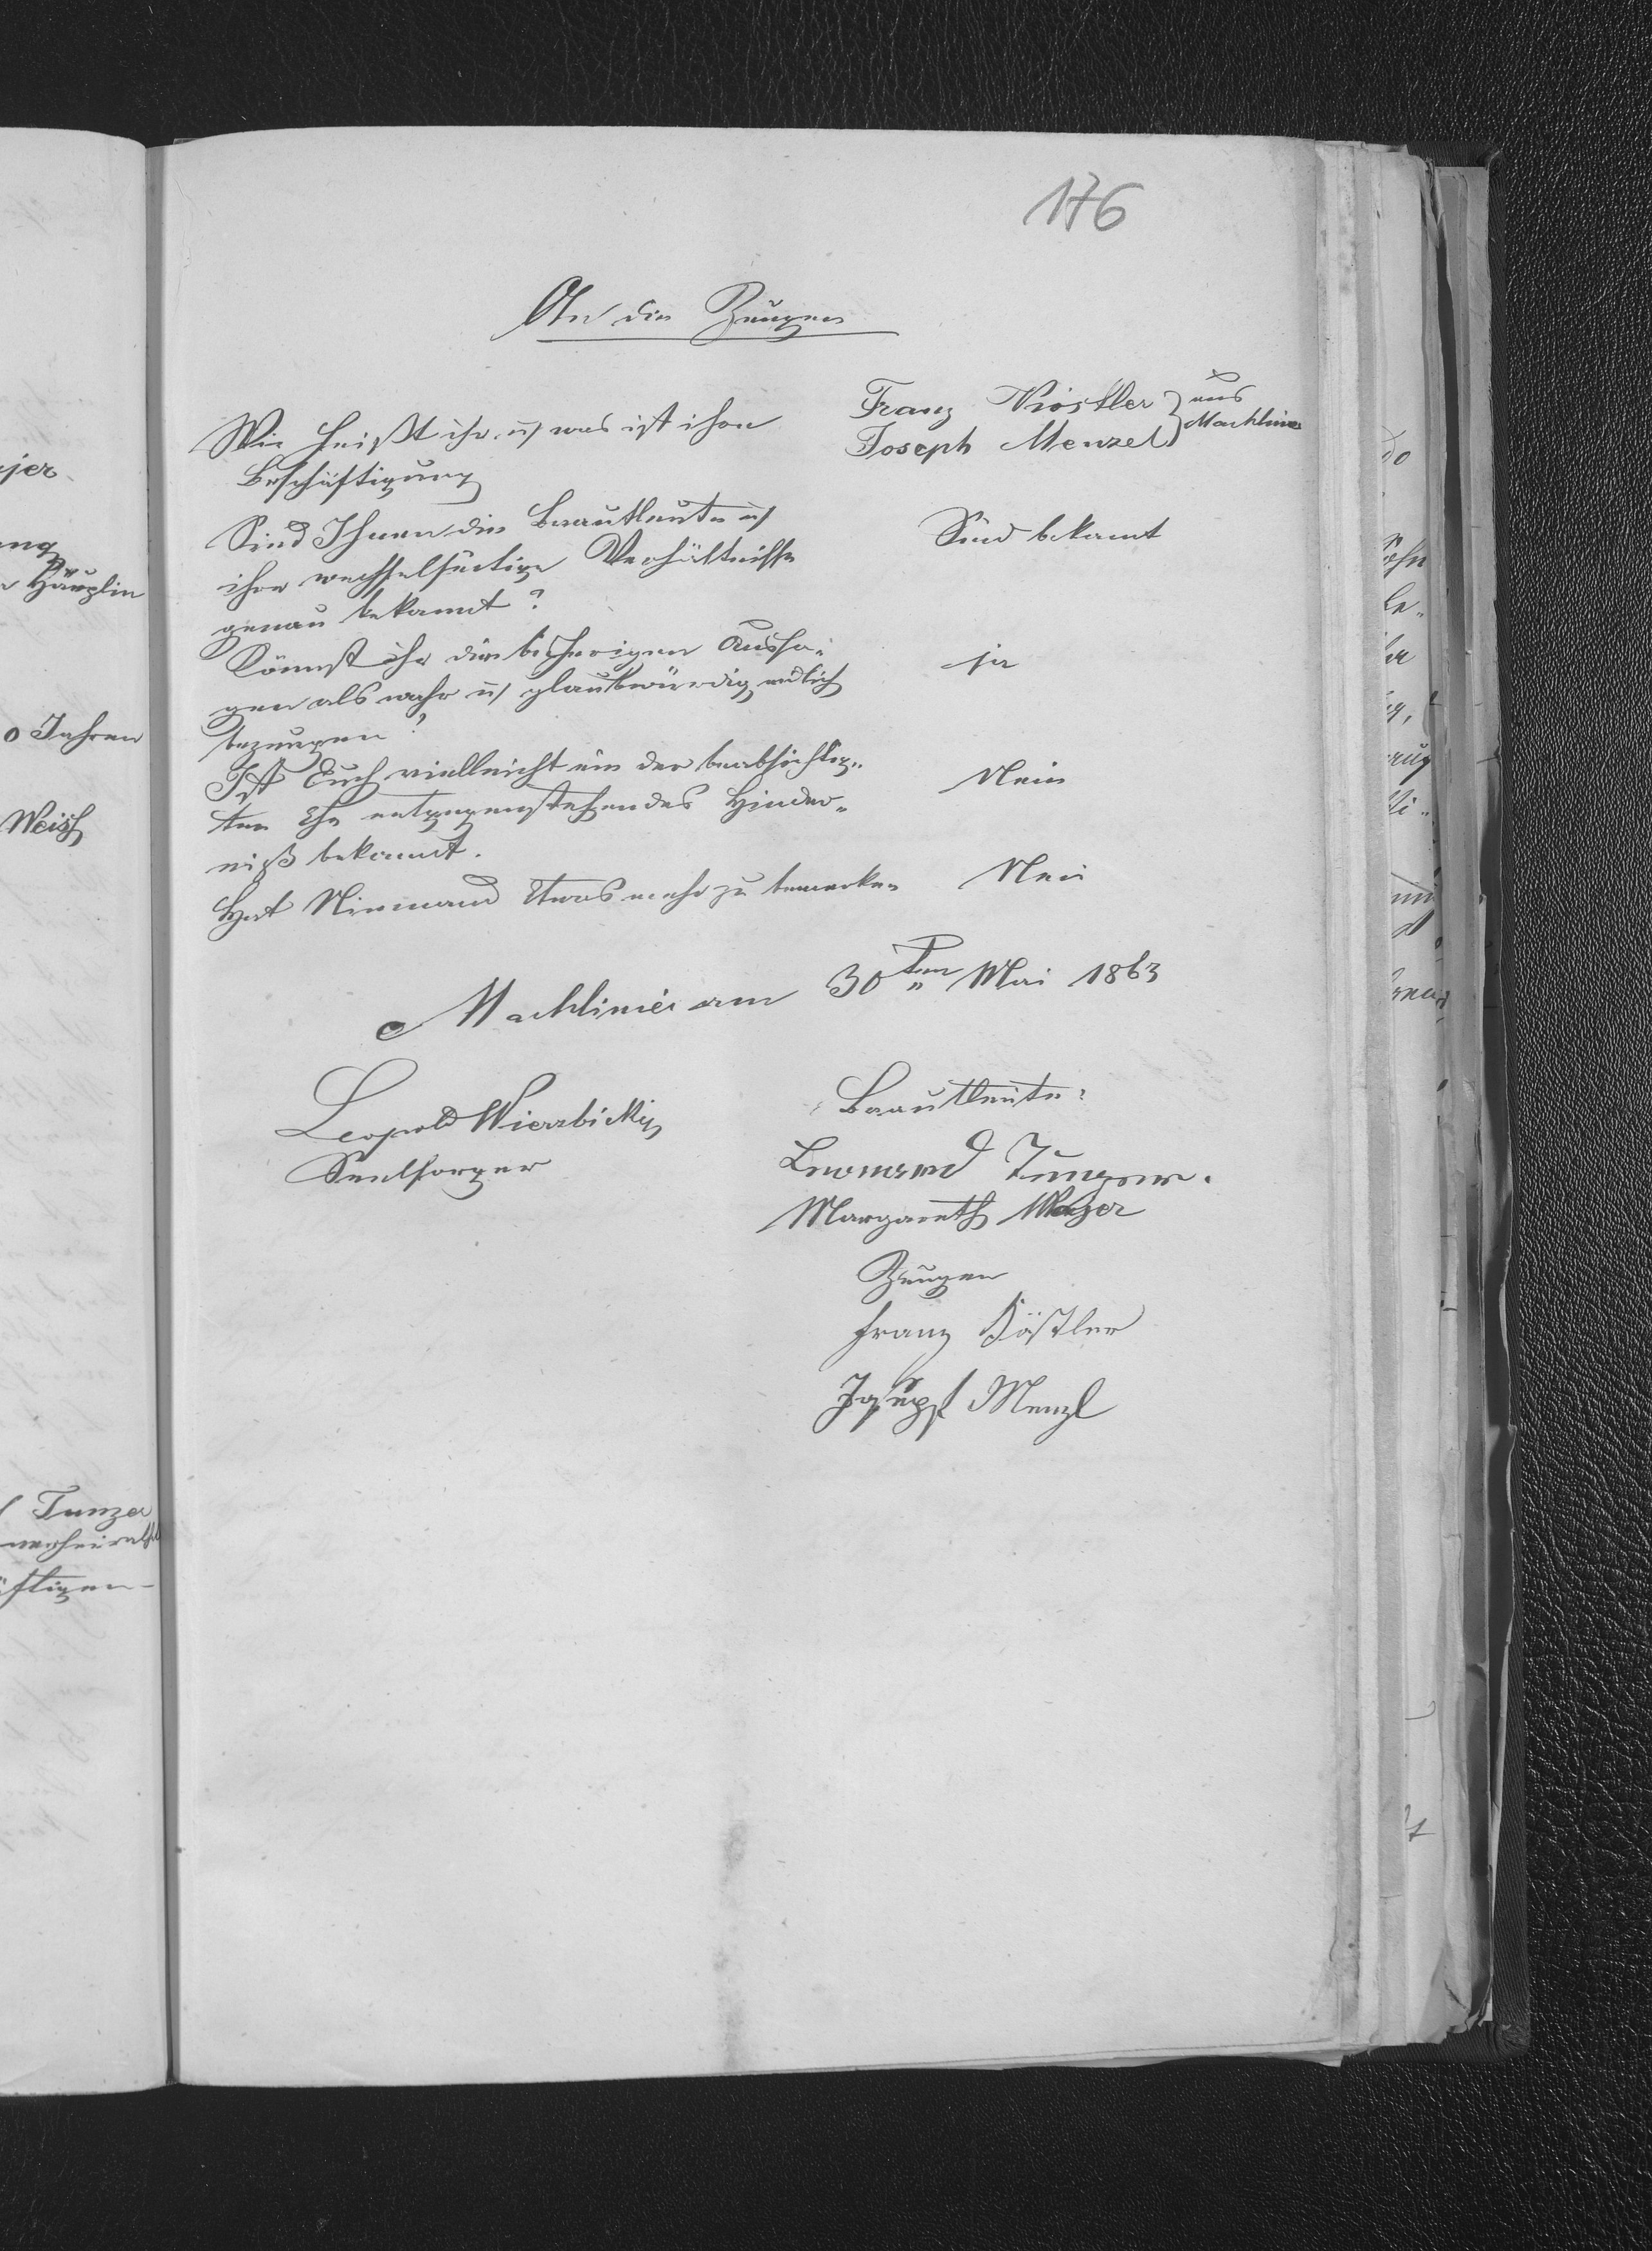 176
An die Zeugen
Wie heißt ihr u/ was ist ihre
Beschäftigung
Franz Kiostler
Joseph Menzel
aus
Machliniec
Sind Ihnen die Brautleute u/
ihre wechselseitige Verhältnisse
genau bekannt?
Sind bekannt
Könnt ihr die bisherigen Aussa-
gen als wahr u/ glaubwürdig eidlich
bezeugen?
ja
Ist Euch vielleicht ein der beabsichtig-
ten Ehe entgegenstehendes Hinder-
niß bekannt.
Nein
Hat Niemand Etwas mehr zu bemerken
Nein
Machliniec am 30ten Mai 1863
Leopold Wierzbicki
Seelsorger
Brautleute:
Leonard Tunzer.
Margareth Mayer
Zeugen
Franz Köstler
Joseph Menzl
jer
Häuplin
o Jahren
Weiß
Tunzer
verheirath